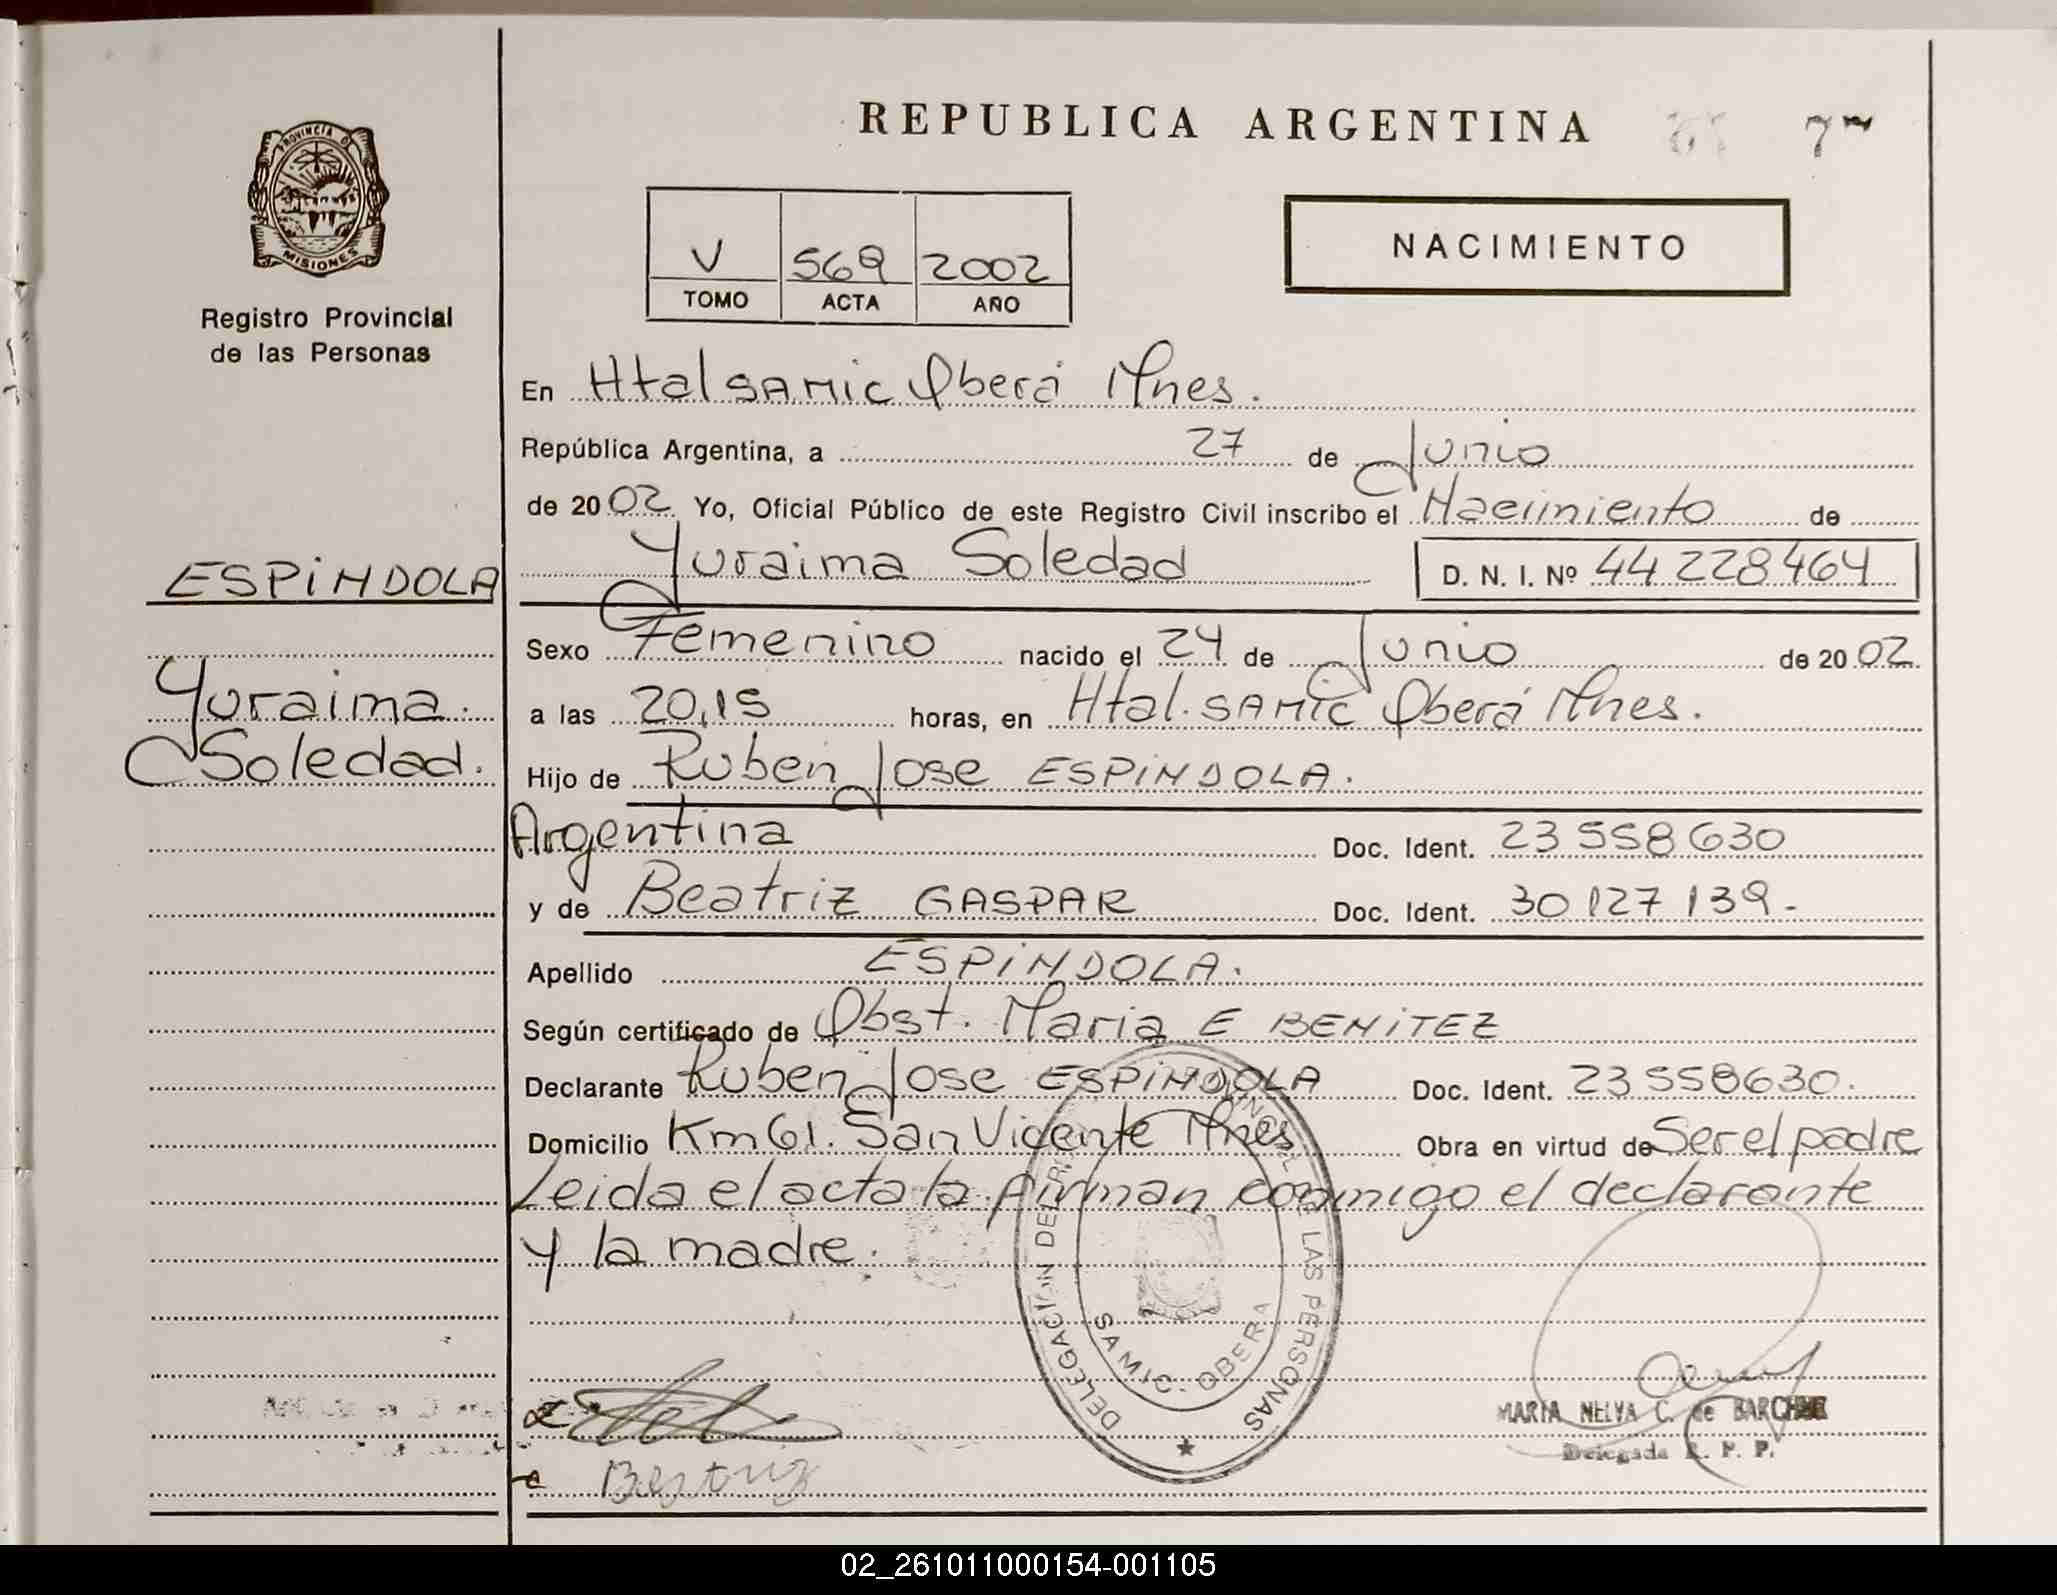 REPUBLICA ARGENTINA
7
PROVINCIA D
MISIONES
Registro Provincial
de las Personas
V 569 2002
TOMO ACTA AÑO
NACIMIENTO
En Htal SAMIC Oberá Mnes.
República Argentina, a 27 de Junio
de 2002 Yo, Oficial Público de este Registro Civil inscribo el Nacimiento de
Yuraima Soledad D. N. I. Nº 44 228 464
ESPINDOLA
Yuraima
Soledad.
Sexo Femenino nacido el 24 de Junio de 2002
a las 20,15 horas, en Htal. SAMIC Oberá Mnes.
Hijo de Ruben Jose ESPINDOLA.
Argentina Doc. Ident. 23 558 630
y de Beatriz GASPAR Doc. Ident. 30 127 139.-
Apellido ESPINDOLA.
Según certificado de Obst. Maria E BENITEZ
Declarante Ruben Jose ESPINDOLA Doc. Ident. 23 558630.
Domicilio Km 61. San Vicente Mnes Obra en virtud de Ser el padre
Leida el acta la firman conmigo el declarante
y la madre.
DELEGACION DEL LAS PERSONAS
SAMIC - OBERA
Beatriz
MARIA NELVA C. de
Delegada R. P. P.
02_261011000154-001105